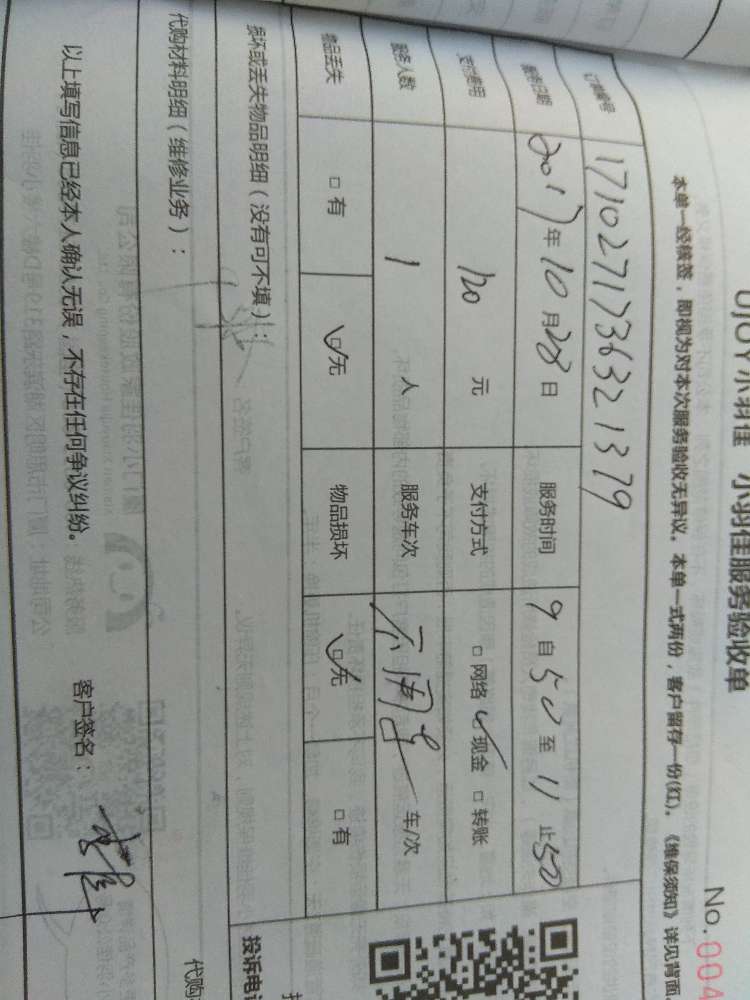 UJOY小羽佳 小羽佳服务验收单
No.004
本单一经核签，即视为对本次服务验收无异议。本单一式两份，客户留存一份(红)。《维保须知》详见背面
订单编号 1710271736321379
服务日期 2017年10月28日 服务时间 9自50至11止50
支付费用 120元 支付方式 □网络 ☑现金 □转账
服务人数 1人 服务车次 车/次
物品丢失 □有 ☑无 物品损坏 ☑无 □有
损坏或丢失物品明细（没有可不填）：
投诉电
代购材料明细（维修业务）：
代购
以上填写信息已经本人确认无误，不存在任何争议纠纷。 客户签名：